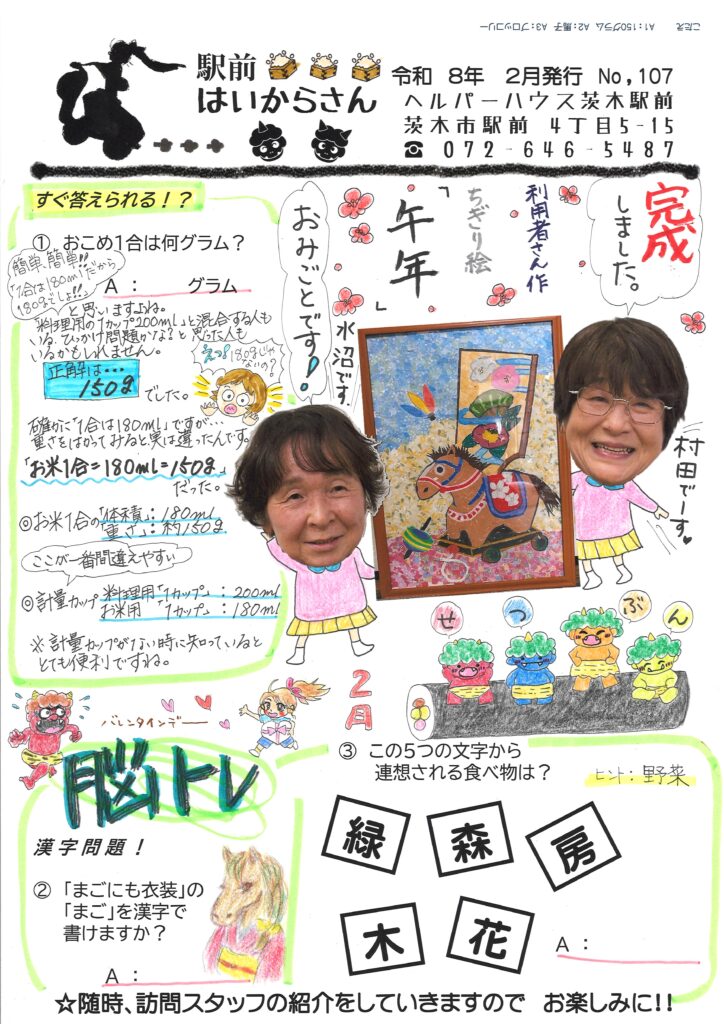 こたえ　A1：150グラム　A2：馬子　A3：ブロッコリー
駅前
はいからさん
令和　8年　2月発行　No,107
ヘルパーハウス茨木駅前
茨木市駅前　4丁目5-15
☎　072-646-5487
すぐ答えられる！？
①　おこめ1合は何グラム？
簡単、簡単!!
「1合は180ml」だから
180gでしょ!!
A：　　　グラム
と思いますよね。
料理用の「1カップ200ml」と混合する人も
いる、ひっかけ問題かな？と思った人も
いるかもしれません。
正解は…
150g
でした。
えっ!180gじゃ
ないの？
確かに「1合は180ml」ですが…
重さをはかってみると実は違ったんです。
「お米1合＝180ml＝150g」
だった。
◎お米1合の「体積」：180ml
「重さ」：約150g
ここが一番間違えやすい
◎計量カップ　料理用「1カップ」：200ml
お米用　「1カップ」：180ml
※計量カップがない時に知っていると
とても便利ですね。
完成
しました。
利用者さん作
ちぎり絵
「午年」
おみごとです!!
水沼です。
村田でーす♥
せつぶん
2月
バレンタインデー
脳トレ
漢字問題！
②　「まごにも衣装」の
「まご」を漢字で
書けますか？
A：
③　この5つの文字から
連想される食べ物は？
ヒント：野菜
緑　森　房
木　花
A：
☆随時、訪問スタッフの紹介をしていきますので　お楽しみに!!